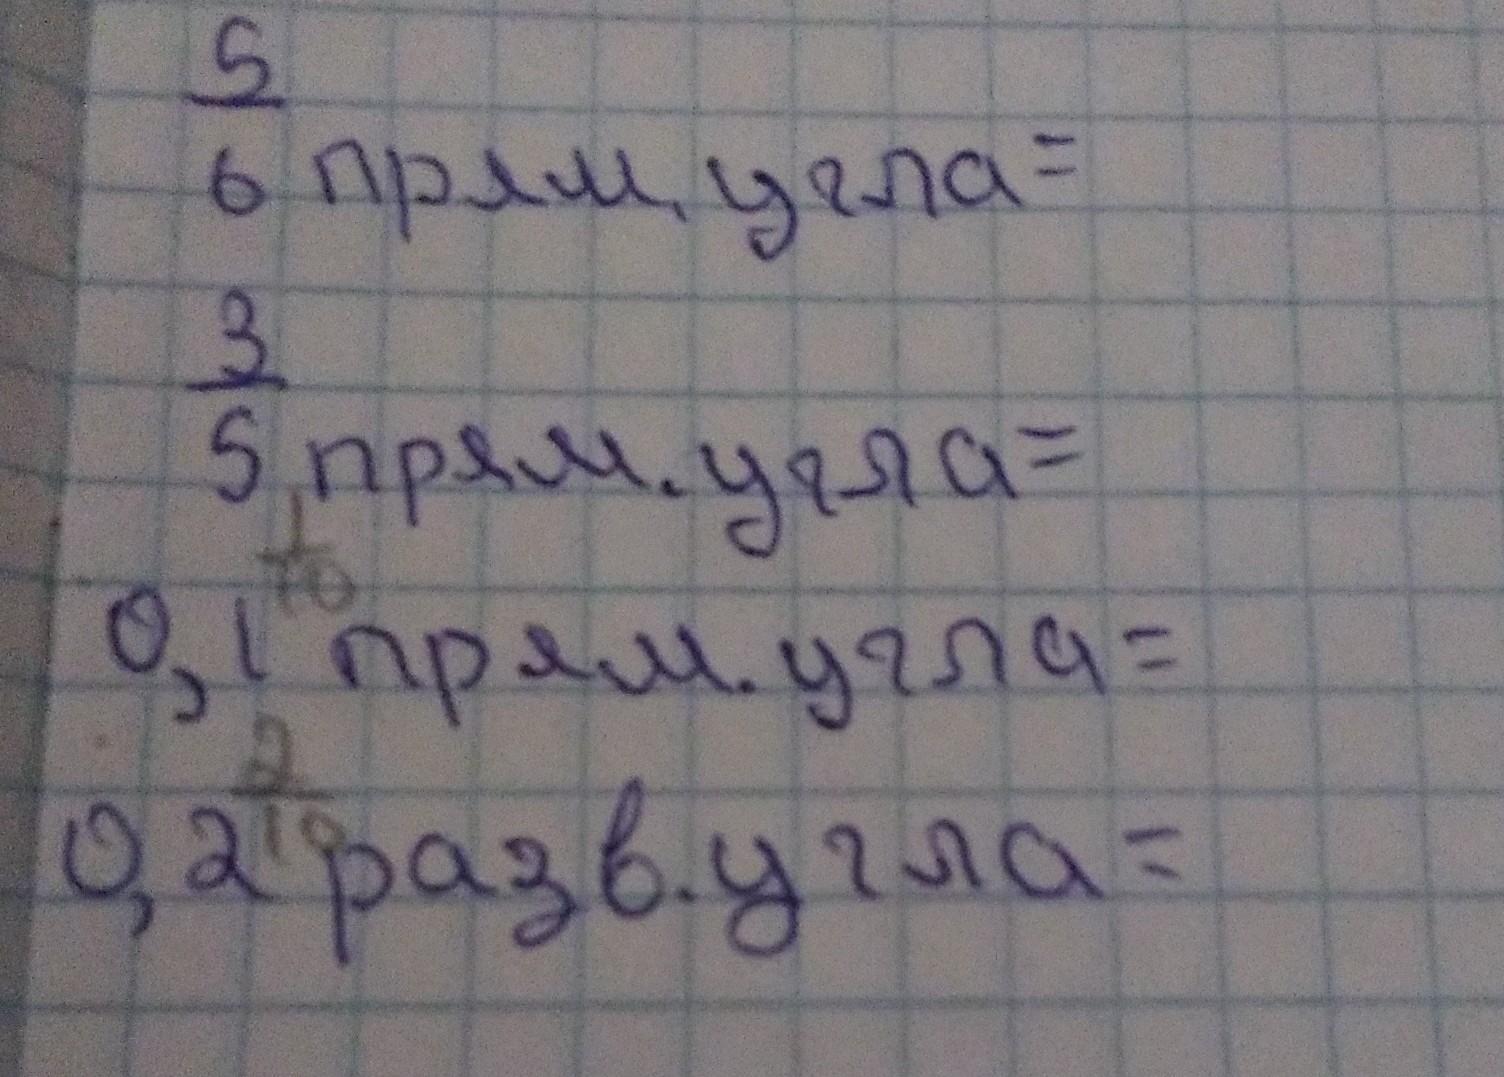 5/6 прям. угла=
3/5 прям. угла=
1/10
0,1 прям. угла=
2/10
0,2 разв. угла=